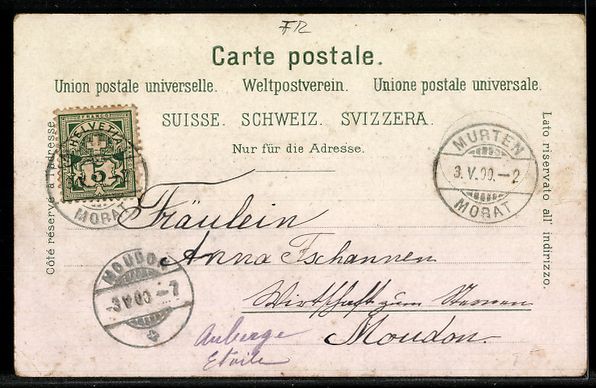 FR
Carte postale.
Union postale universelle. Weltpostverein. Unione postale universale.
SUISSE. SCHWEIZ. SVIZZERA.
Nur für die Adresse.
Côté réservé à l'adresse.
Lato riservato all' indirizzo.
FRANCO
HELVETIA
5
MORAT
MURTEN
3.V.00.-2
MORAT
MOUDON
-3.V.00.-7
Fräulein
Anna Tschannen
Wirtschaft zum Sternen
Moudon.
Auberge
Etoile